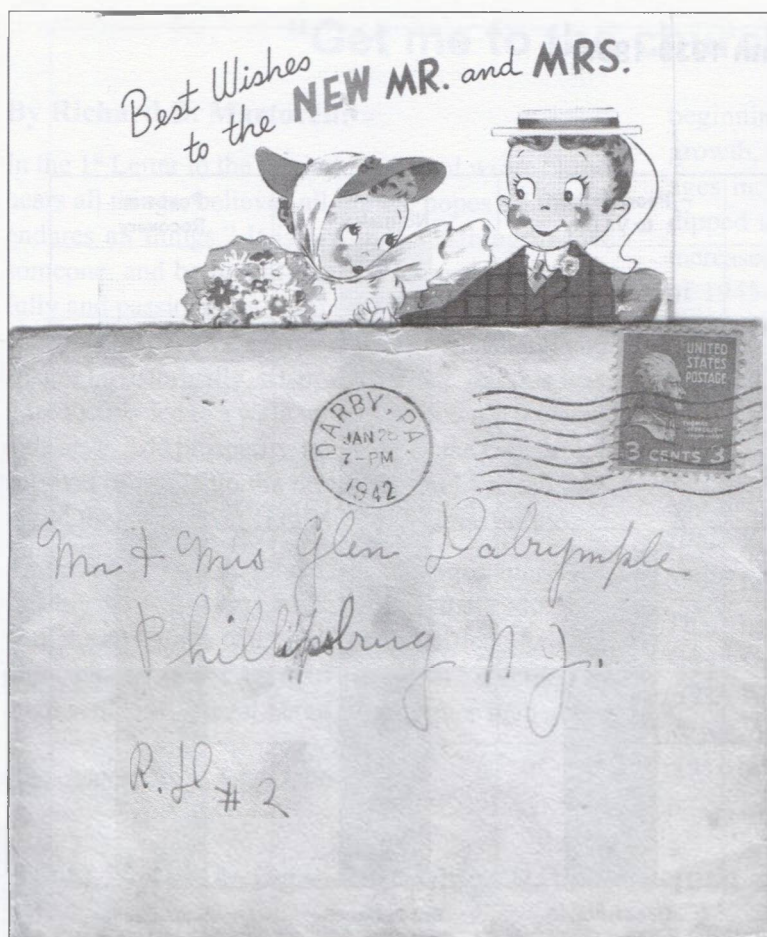 Best Wishes
to the NEW MR. and MRS.
UNITED
STATES
POSTAGE
3 CENTS 3
DARBY, PA.
JAN 26
7-PM
1942
Mr + Mrs Glen Dalrymple
Phillipsbrug N J.
R. D # 2